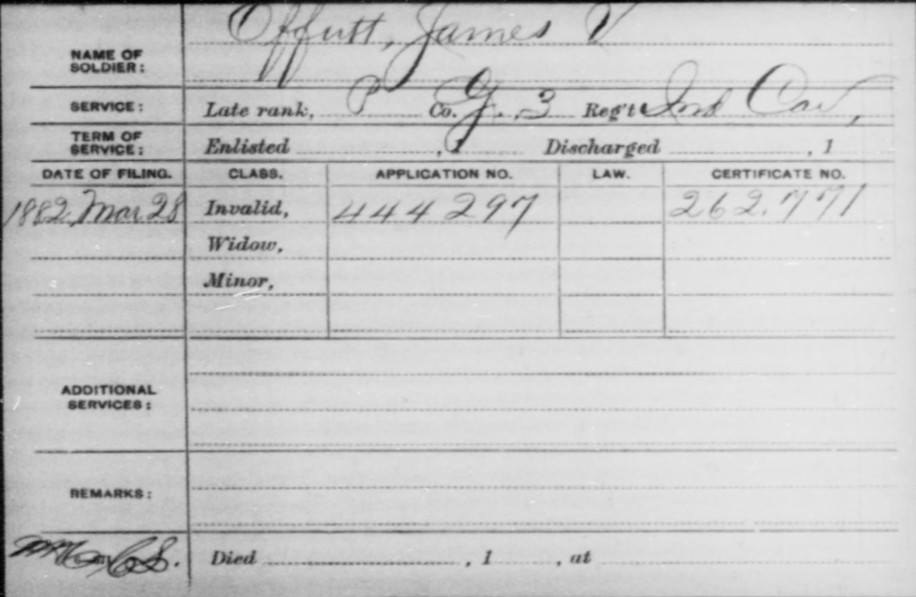 Offutt, James V
NAME OF
SOLDIER:
SERVICE: Late rank, P Co. G. 3 Reg't Ind Cav,
TERM OF
SERVICE: Enlisted , 1 Discharged , 1
DATE OF FILING. CLASS. APPLICATION NO. LAW. CERTIFICATE NO.
1882 Mar 28 Invalid, 444297 262.771
Widow,
Minor,
ADDITIONAL
SERVICES:
REMARKS:
Died , 1 , at